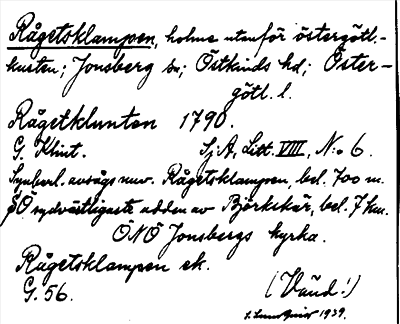 Rågetsklampen, holme utanför östergötl.-
kusten; Jonsberg sn; Östkinds hd; Öster-
götl. l.
Rågetklunten 1790.
G. Klint. Sj.A, Litt. VIII, N:o 6.
Synberl. avságs nuv. Rågetsklampen, bel. 700 m.
SO sydvästligaste udden av Björkskär, bel. 7 km.
ONO Jonsbergs kyrka.
Rågetsklampen ek.
G. 56. (Vañd!)
1939.